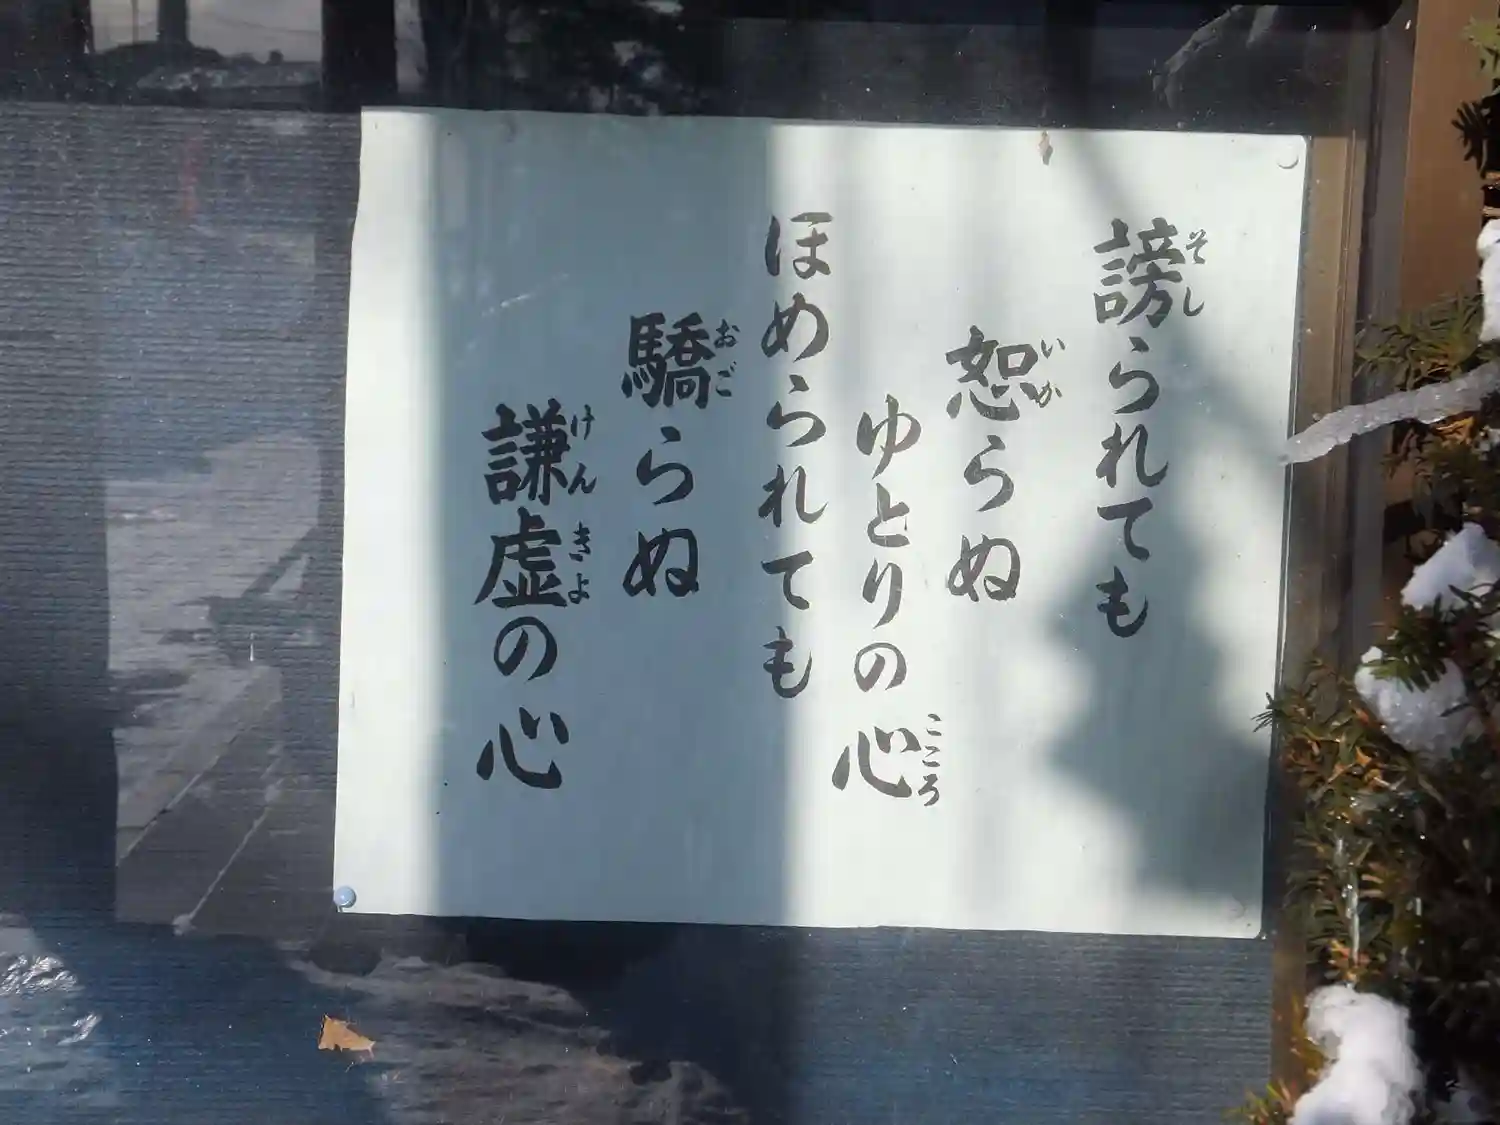 謗られても
恕らぬ
ゆとりの心
ほめられても
驕らぬ
謙虚の心
そし
いか
こころ
おご
けんきよ